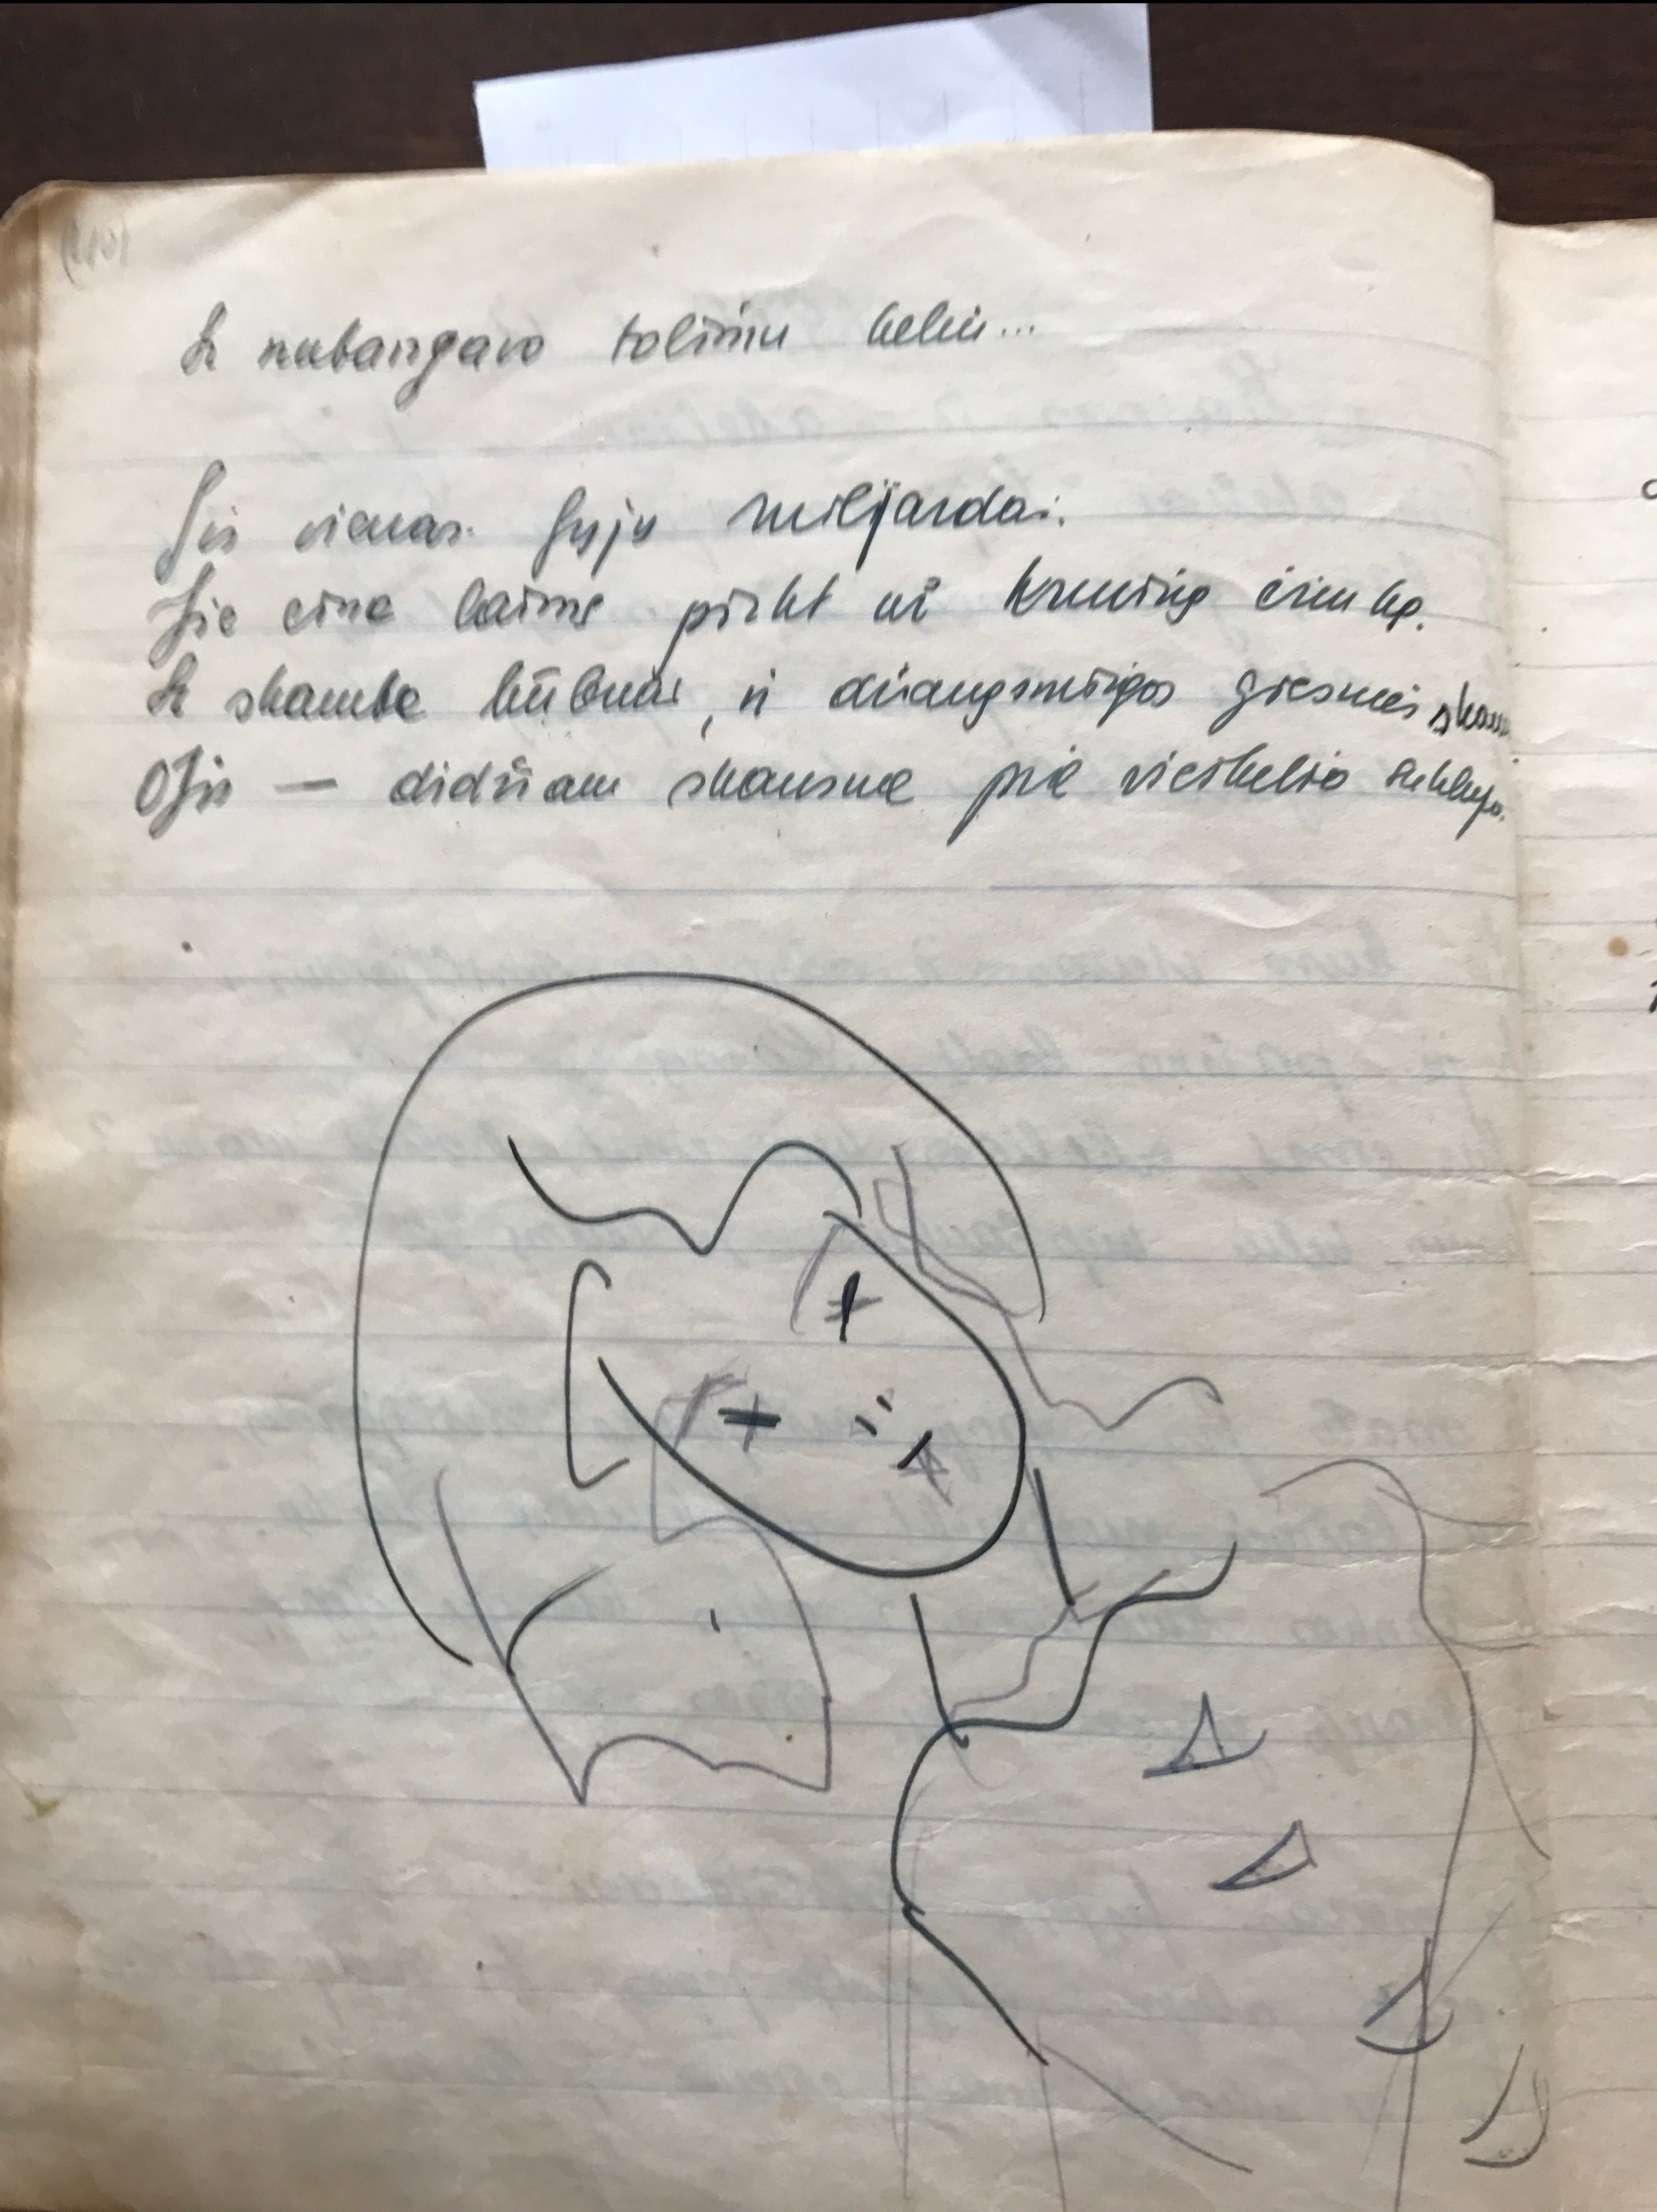 Ir nubangavo tolimu keliu...
Jis vienas. Jųjų milijardai.
Jie eina laimę pirkt už kruviną čirunką.
Ir skamba būbnai, ir džiaugsmingos giesmės skamba
O Jis — didžiam skausme prie vieškelio suklupo.